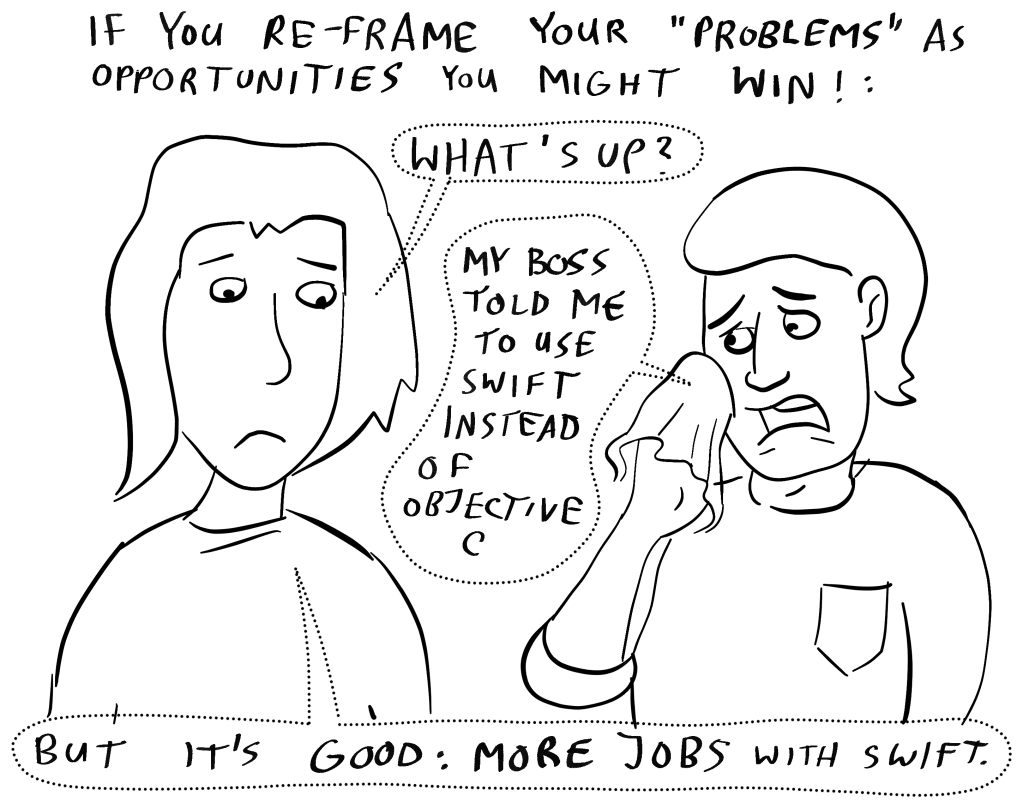 IF YOU RE-FRAME YOUR "PROBLEMS" AS
OPPORTUNITIES YOU MIGHT WIN!:
WHAT'S UP?
MY BOSS
TOLD ME
TO USE
SWIFT
INSTEAD
OF
OBJECTIVE
C
BUT IT'S GOOD: MORE JOBS WITH SWIFT.